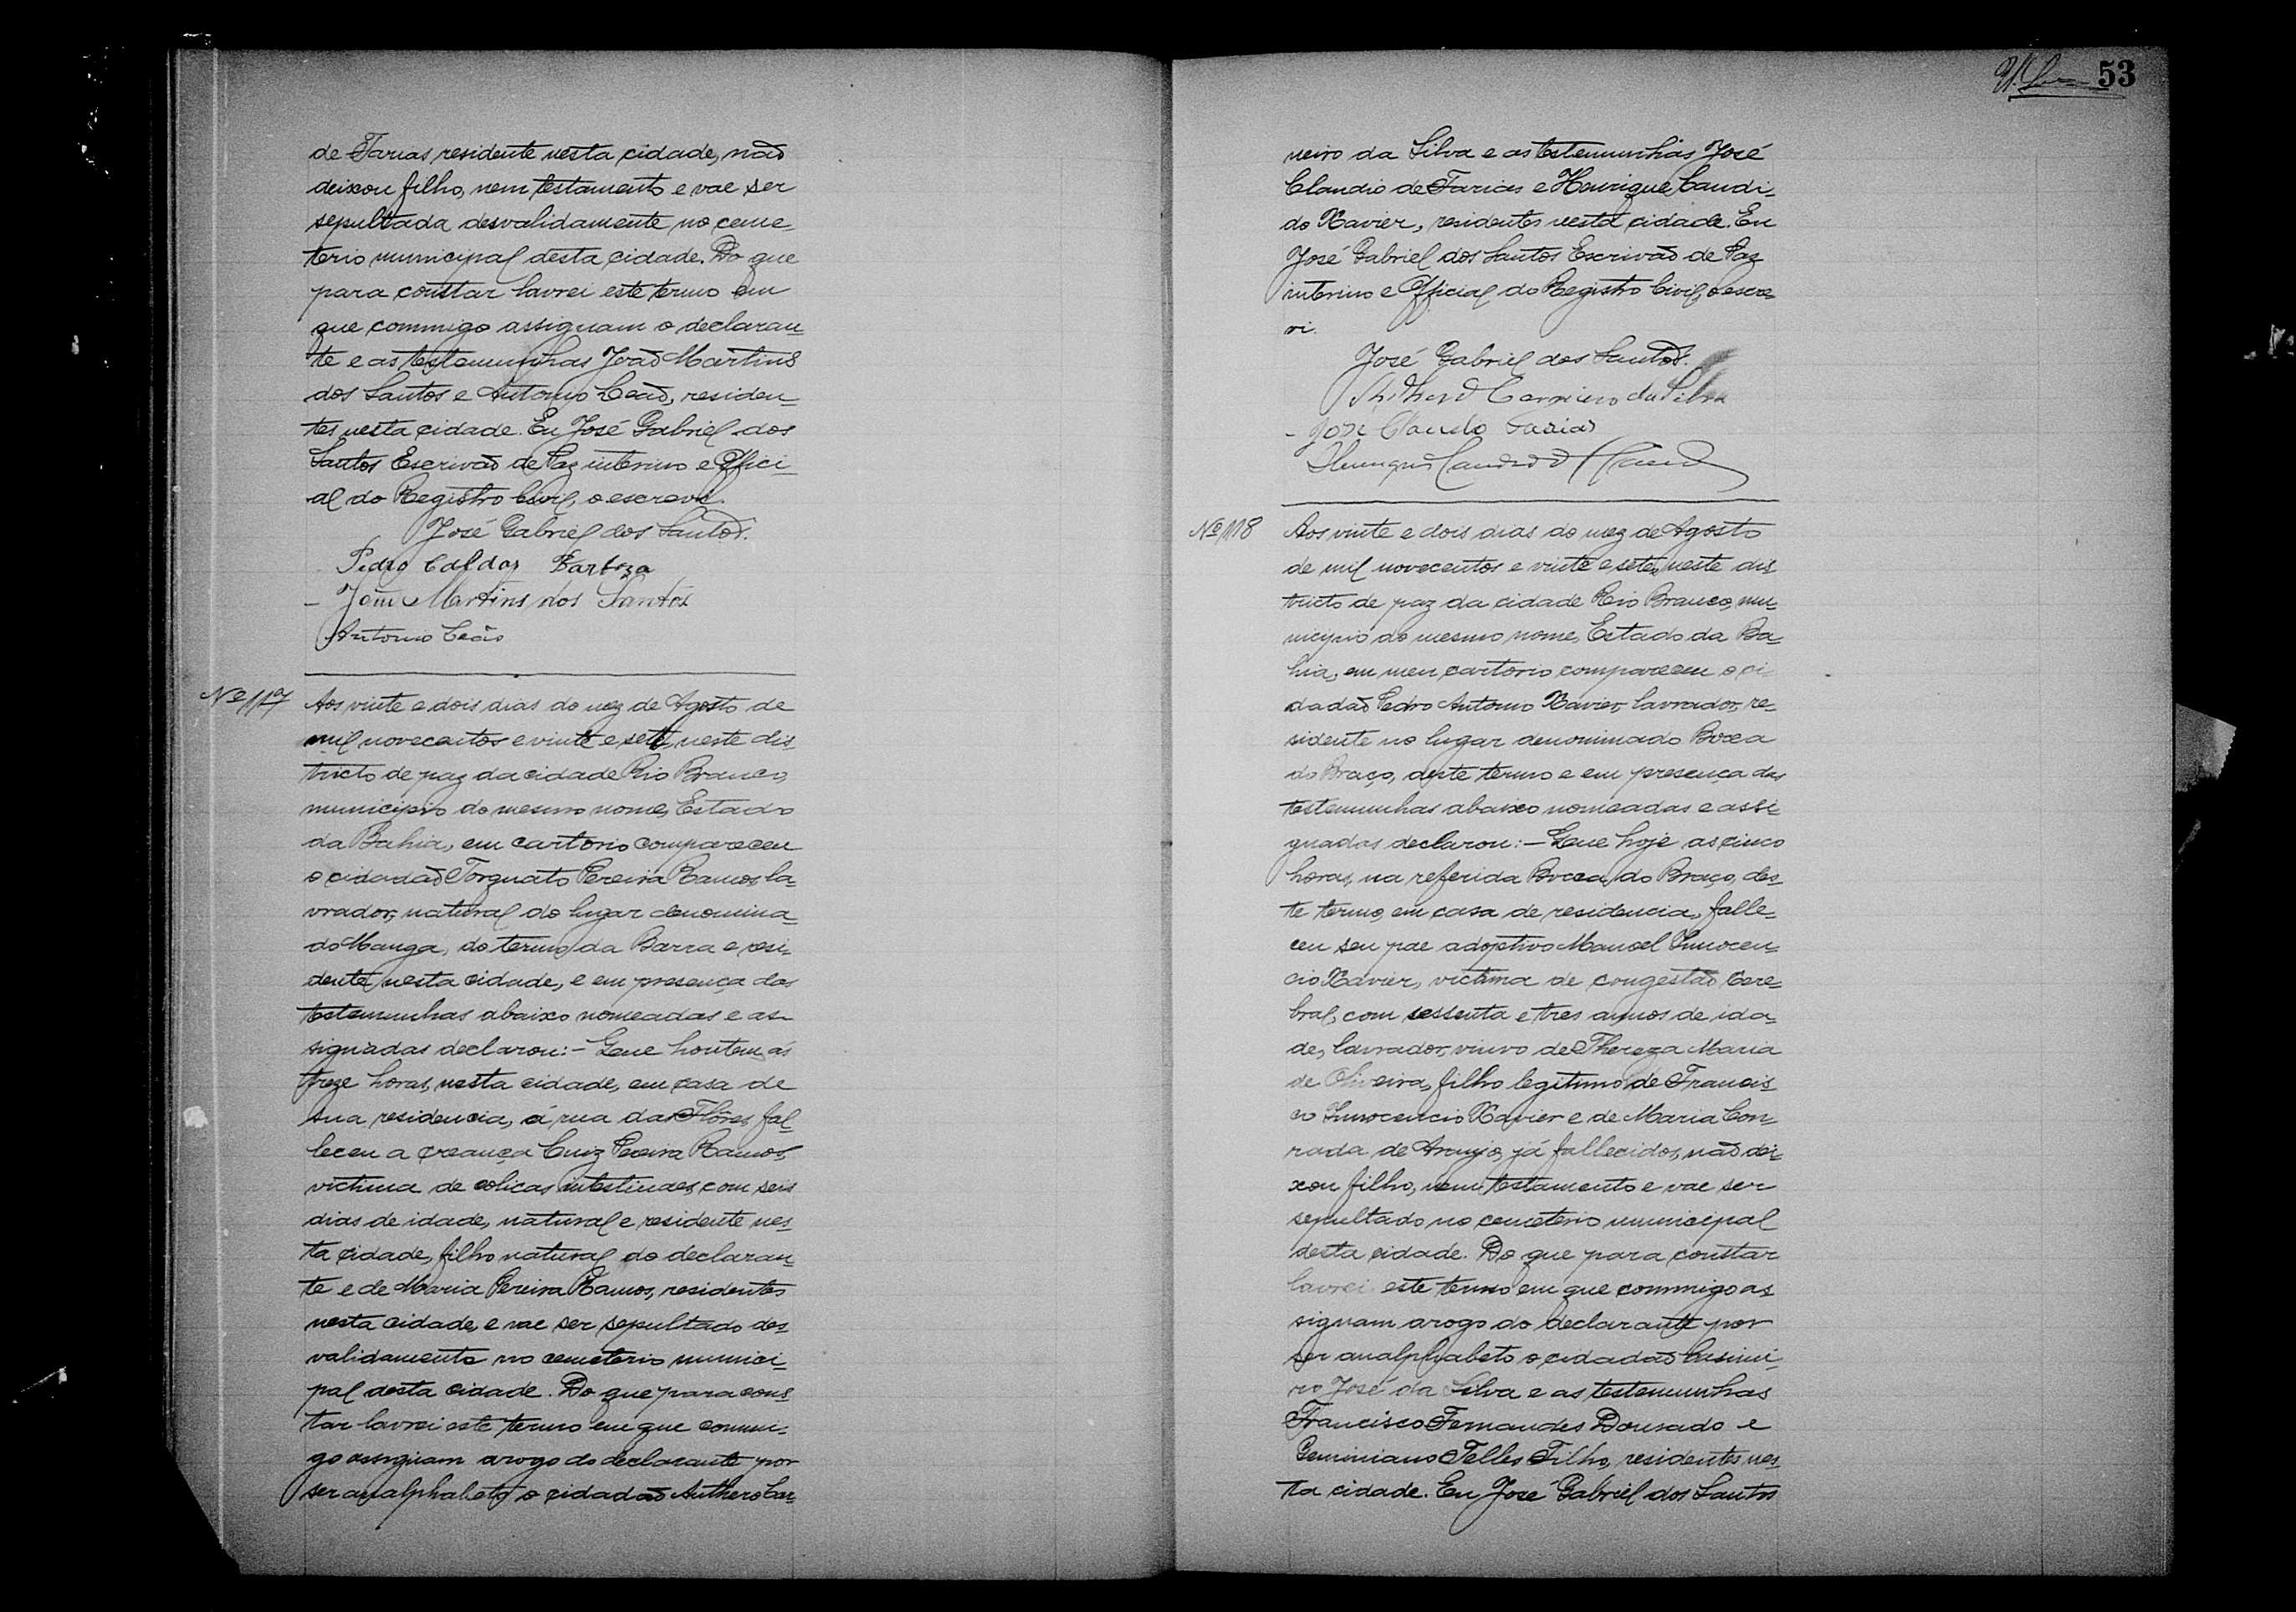 de Farias residente nesta cidade, não
deixou filho, nem testamento e vae ser
sepultada desvalidamente no ceme-
terio municipal desta cidade. Do que
para constar lavrei este termo em
que commigo assignam o declaran-
te e as testemunhas João Martins
dos Santos e Antonio Leão, residen-
tes nesta cidade. Eu José Gabriel dos
Santos Escrivão de Paz interino e Offici-
al do Registro Civil, o escrevi.
José Gabriel dos Santos.
Pedro Caldas Barboza
João Martins dos Santos
Antonio Leão
Nº 117
Aos vinte e dois dias do mez de Agosto de
mil novecentos e vinte e sete, neste dis
tricto de paz da cidade Rio Branco,
municipio do mesmo nome, Estado
da Bahia, em cartorio compareceu
o cidadão Torquato Pereira Ramos la-
vrador, natural do lugar denomina-
do Manga, do termo da Barra e resi-
dente nesta cidade, e em presença das
testemunhas abaixo nomeadas e as-
signadas declarou:- Que hontem, ás
treze horas, nesta cidade, em casa de
sua residencia, á rua das Flôres, fal-
leceu a creança Luiz Pereira Ramos,
victima de colicas intestinaes, com seis
dias de idade, natural e residente nes-
ta cidade, filho natural do declaran-
te e de Maria Pereira Ramos, residentes
nesta cidade, e vae ser sepultado des-
validamente no cemeterio munici-
pal desta cidade. Do que para cons
tar lavrei este termo em que commi-
go assignam arogo do declarante por
ser analphabeto o cidadão Anthero Car-
53
neiro da Silva e as testemunhas José
Claudio de Farias e Henrique Candi-
do Xavier, residentes nesta cidade. Eu
José Gabriel dos Santos Escrivão de Paz
interino e Official do Registro Civil, o escre-
vi.
José Gabriel dos Santos.
Carneiro da Silva
José Claudo Farias
Henrique Candido
Nº 118
Aos vinte e dois dias do mez de Agosto
de mil novecentos e vinte e sete, neste dis
tricto de paz da cidade Rio Branco, mu-
nicipio do mesmo nome, Estado da Ba-
hia, em meu cartorio compareceu o ci-
dadão Pedro Antonio Xavier, lavrador, re-
sidente no lugar denominado Bocca
do Braço, deste termo e em presença das
testemunhas abaixo nomeadas e assi-
gnadas declarou:- Que hoje as cinco
horas, na referida Bocca do Braço, des-
te termo, em casa de residencia, falle-
ceu seu pae adoptivo Manoel Innocen-
cio Xavier, victima de congestão Cere-
bral, com sessenta e tres annos de ida-
de, lavrador, viuvo de Thereza Maria
de Oliveira, filho legitimo de Francis-
co Innocencio Xavier e de Maria Con-
rada de Araujo, já fallecidos, não dei-
xou filho, nem testamento e vae ser
sepultado no cemeterio municipal
desta cidade. Do que para constar
lavrei este termo em que commigo as
signam arogo do declarante por
ser analphabeto o cidadão Casimi-
ro José da Silva e as testemunhas
Francisco Fernandes Dourado e
Geminiano Telles Filho, residentes nes-
ta cidade. Eu José Gabriel dos Santos